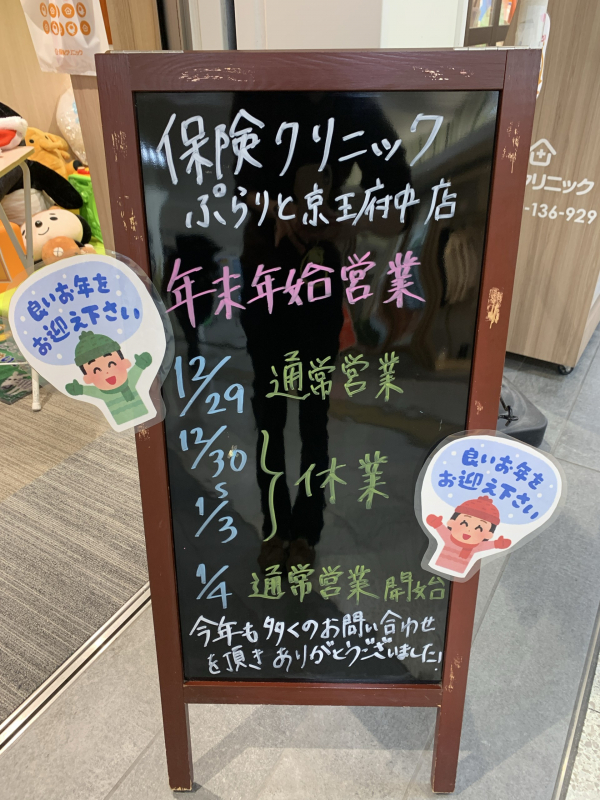 保険クリニック
ぷらりと京王府中店
年末年始営業
12/29 通常営業
12/30
S 休業
1/3
1/4 通常営業開始
今年も多くのお問い合わせ
を頂きありがとうございました!
良いお年を
お迎え下さい
良いお年を
お迎え下さい
クリニック
-136-929